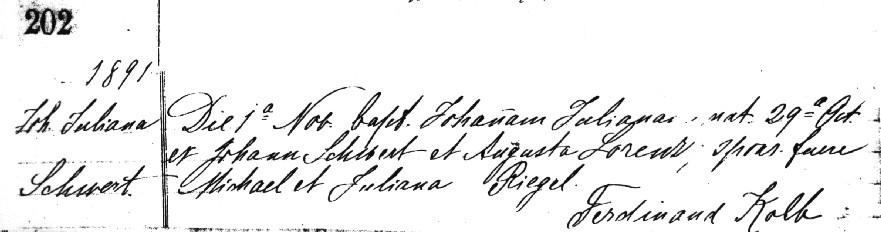 202
1891
Joh. Juliana
Schwert.
Die 1ª Nov. bapt. Johañam Julianam, nat. 29ª Oct.
ex Johann Schwert et Augusta Lorenz, spons. fuere
Michael et Juliana Riegel.
Ferdinand Kolb